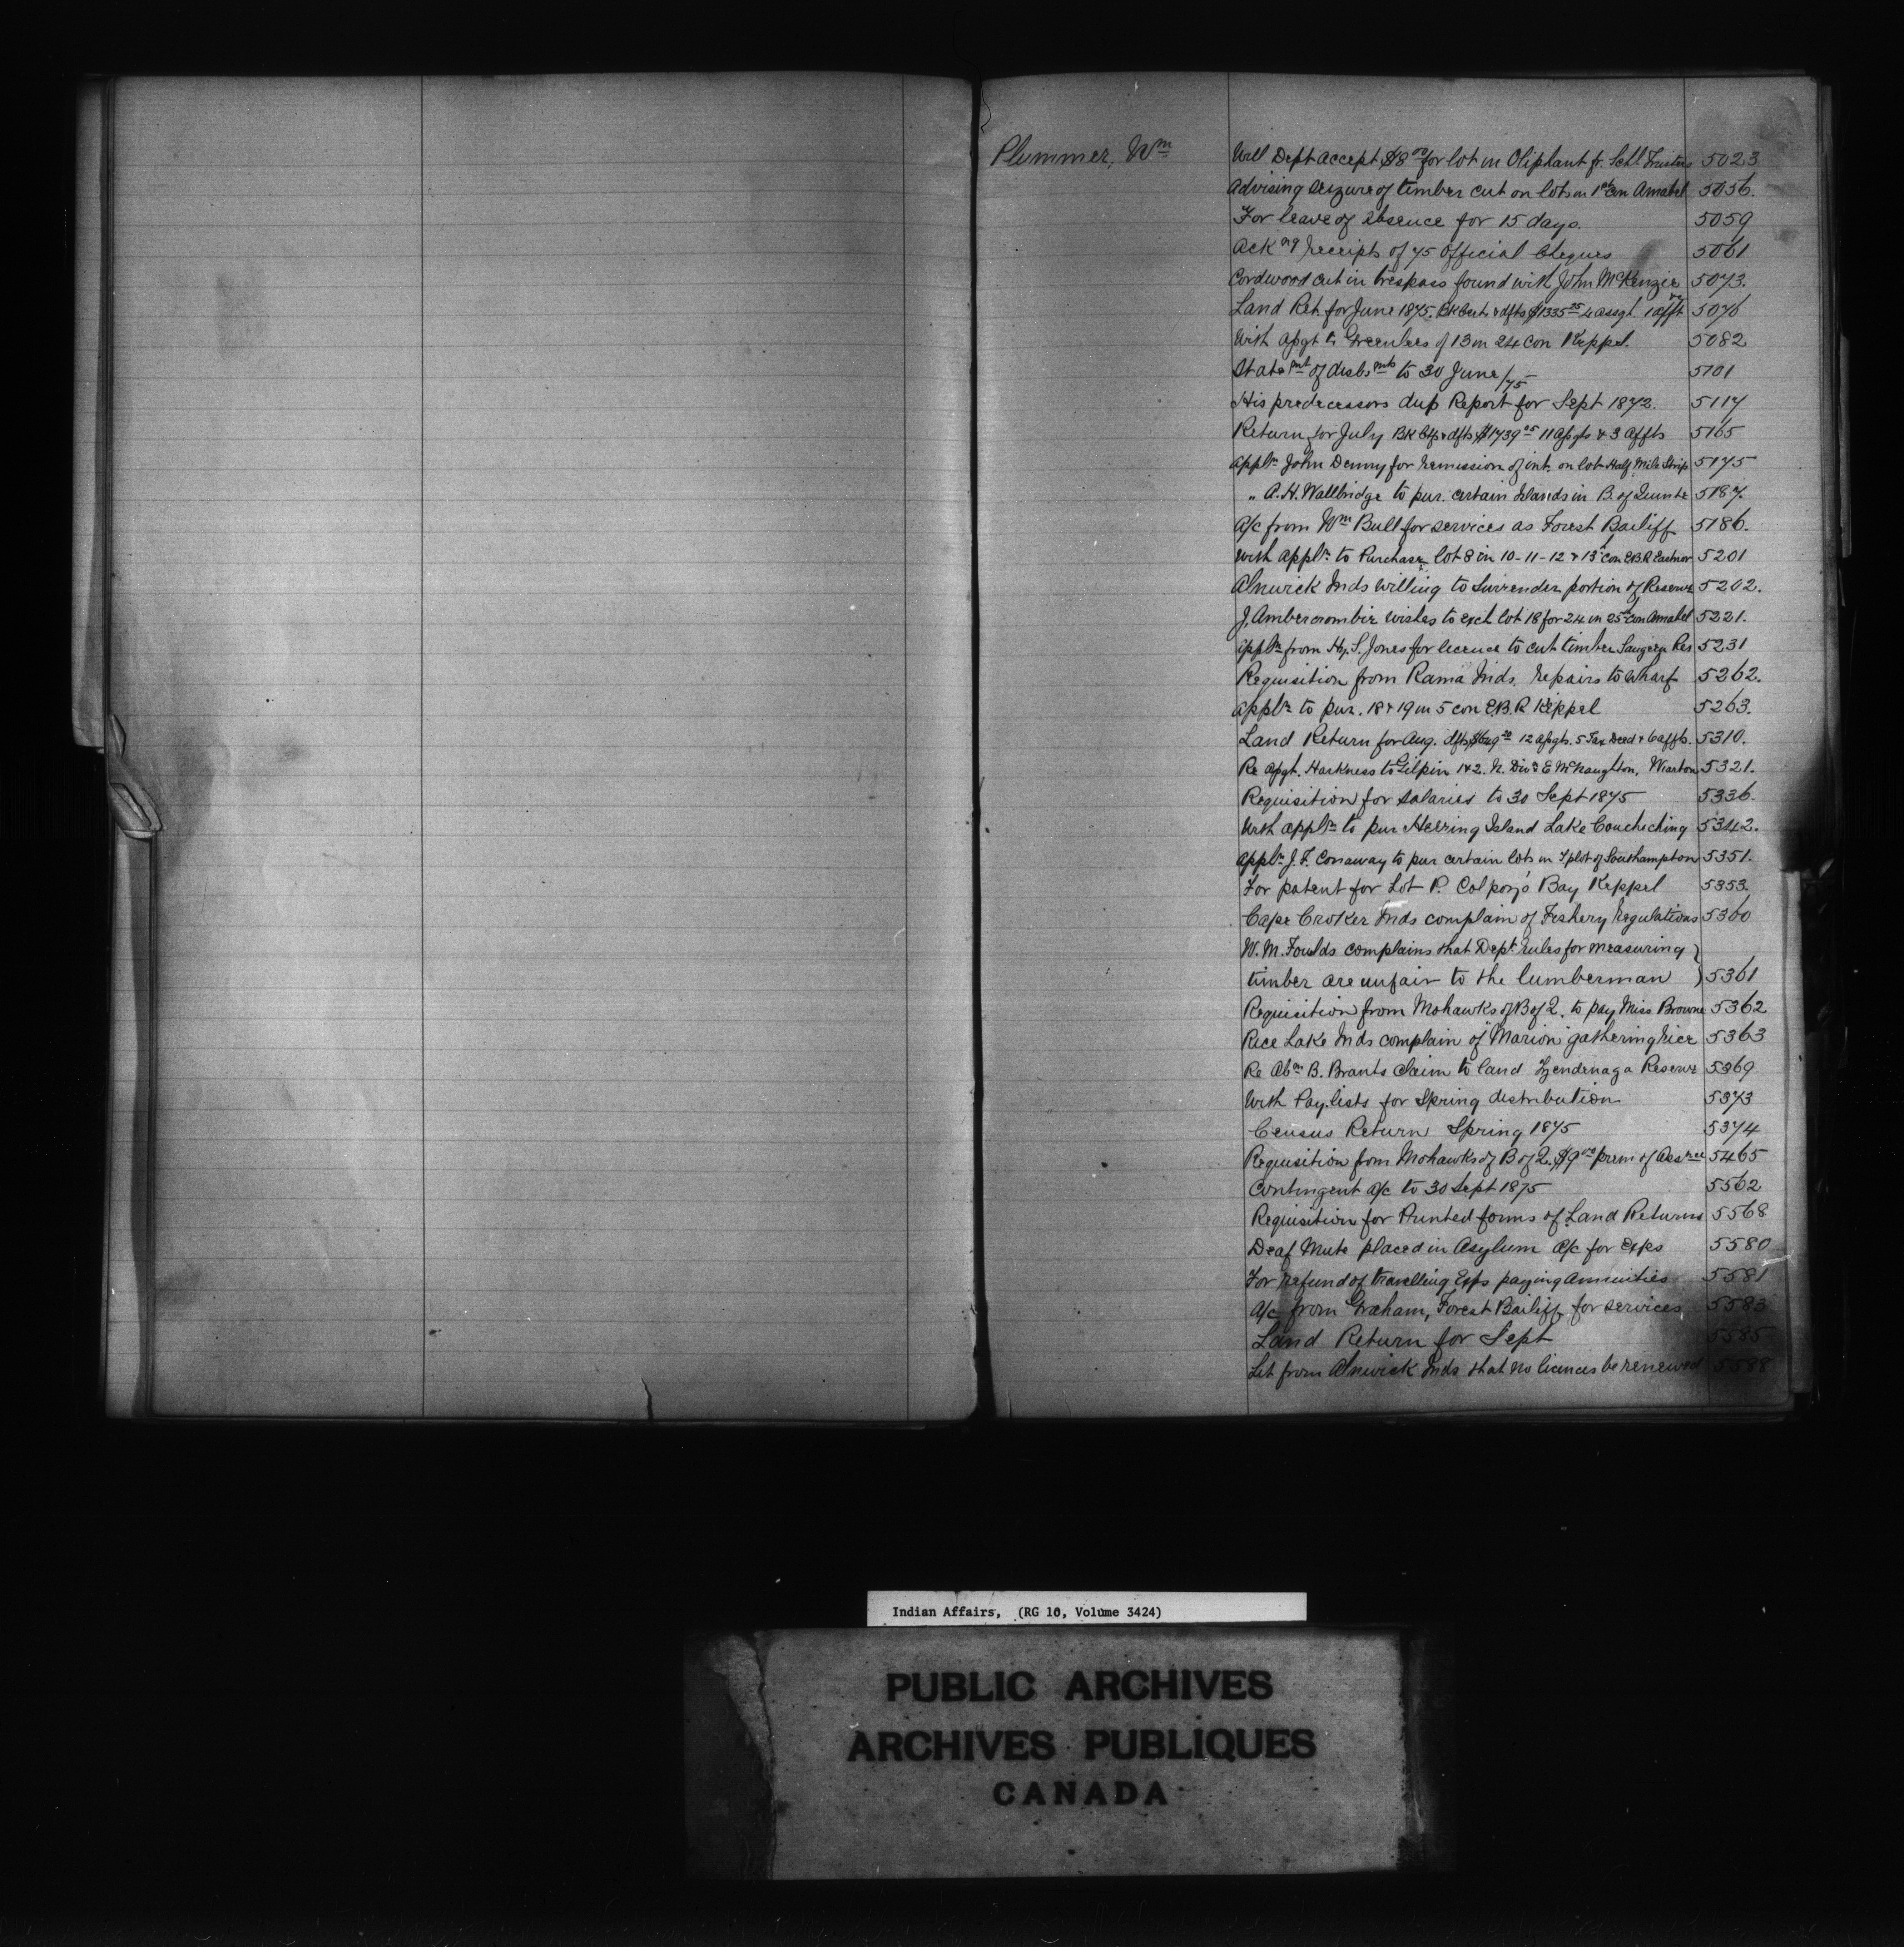 Plummer, Wm
Will Dept accept $8.00 for lot in Oliphant fr. Schl. Trustees 5023
Advising seizure of timber cut on lots in 1st Con Amabel 5056.
For leave of absence for 15 days. 5059
Ackng receipts of 75 Official Cheques 5061
Cordwood cut in trespass found with John McKenzie 5073.
Land Ret. for June 1875. Bk Certs & dfts $1335.25 4 assgt. 1 afft 5076
With assgt to Greenlees of 13 in 24 Con Keppel. 5082
Statemt of disbsmts to 30 June/75 5101
His predecessors dup Report for Sept 1872. 5117
Return for July Bk Ctfs & dfts $1739.05 11 Assgts & 3 Affts 5165
Appln John Denny for remission of int. on lot Half Mile Strip 5175
" A.H. Wallbridge to pur. certain Islands in B. of Quinte 5187.
A/c from Wm Bull for services as Forest Bailiff 5186.
With Appln to Purchase lot 8 in 10-11-12 & 13 Con E.B.R Eastnor 5201
Alnwick Inds willing to Surrender portion of Reserve 5202.
J. Ambercrombie wishes to exch lot 18 for 24 in 25th Con Amabel 5221.
Appln from Hy. S. Jones for licence to cut timber Saugeen Res 5231
Requisition from Rama Inds. repairs to Wharf 5262.
Appln to pur. 18 & 19 in 5 con E.B.R Keppel 5263.
Land Return for Aug. dfts 12 Assgts. 5 Tax Deed & 6 affts. 5310.
Re Assgt. Harkness to Gilpin 1 & 2. N. Div & E McNaughton, Wiarton 5321.
Requisition for salaries to 30 Sept 1875 5336.
With appln to pur Herring Island Lake Couchiching 5342.
Appln J.F. Conaway to pur certain lots in T plot of Southampton 5351.
For patent for Lot P. Colpoy's Bay Keppel 5353.
Cape Croker Inds complain of Fishery Regulations 5360
W.M. Foulds complains that Dept. rules for measuring }
timber are unfair to the lumberman } 5361
Requisition from Mohawks of B of Q. to pay Miss Browne 5362
Rice Lake Inds complain of "Marion" gathering rice 5363
Re Abm B. Brants Claim to land Tyendenaga Reserve 5369
With Pay-lists for Spring distribution 5373
Census Return Spring 1875 5374
Requisition from Mohawks of B of Q. $9.00 prem of Assce 5465
Contingent A/c to 30 Sept 1875 5562
Requisition for Printed forms of Land Returns 5568
Deaf Mute placed in Asylum A/c for Exps 5580
For refund of travelling Exps paying Annuities 5581
A/c from Graham, Forest Bailiff for services 5583
Land Return for Sept 5585
Let from Alnwick Inds that no licences be renewed 5588
Indian Affairs, (RG 10, Volume 3424)
PUBLIC ARCHIVES
ARCHIVES PUBLIQUES
CANADA